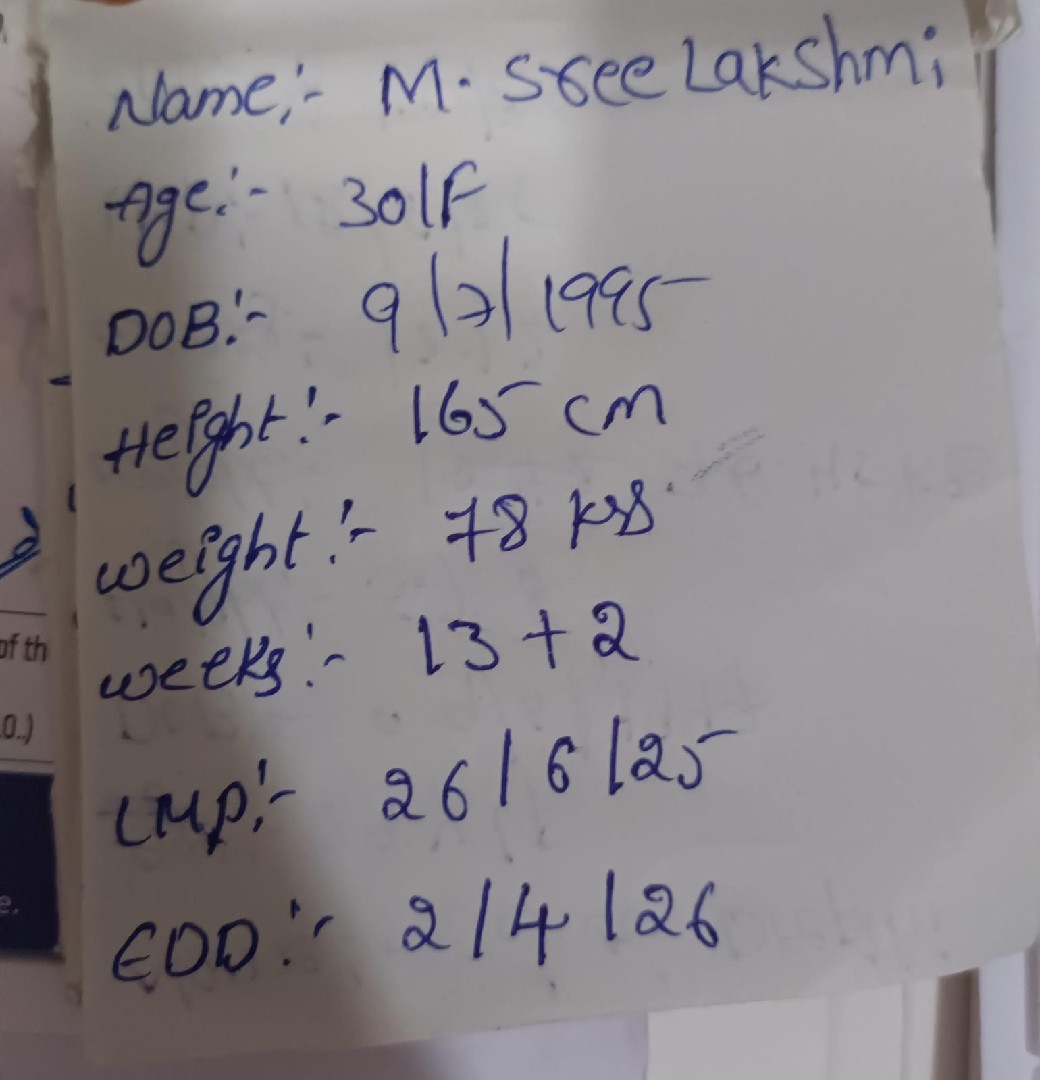 Name:- M. Sree Lakshmi
Age:- 30/F
DOB:- 9/7/1995
Height:- 165 cm
weight:- 78 kgs.
weeks:- 13+2
LMP:- 26/6/25
EDD:- 2/4/26
of th
.0.)
e.